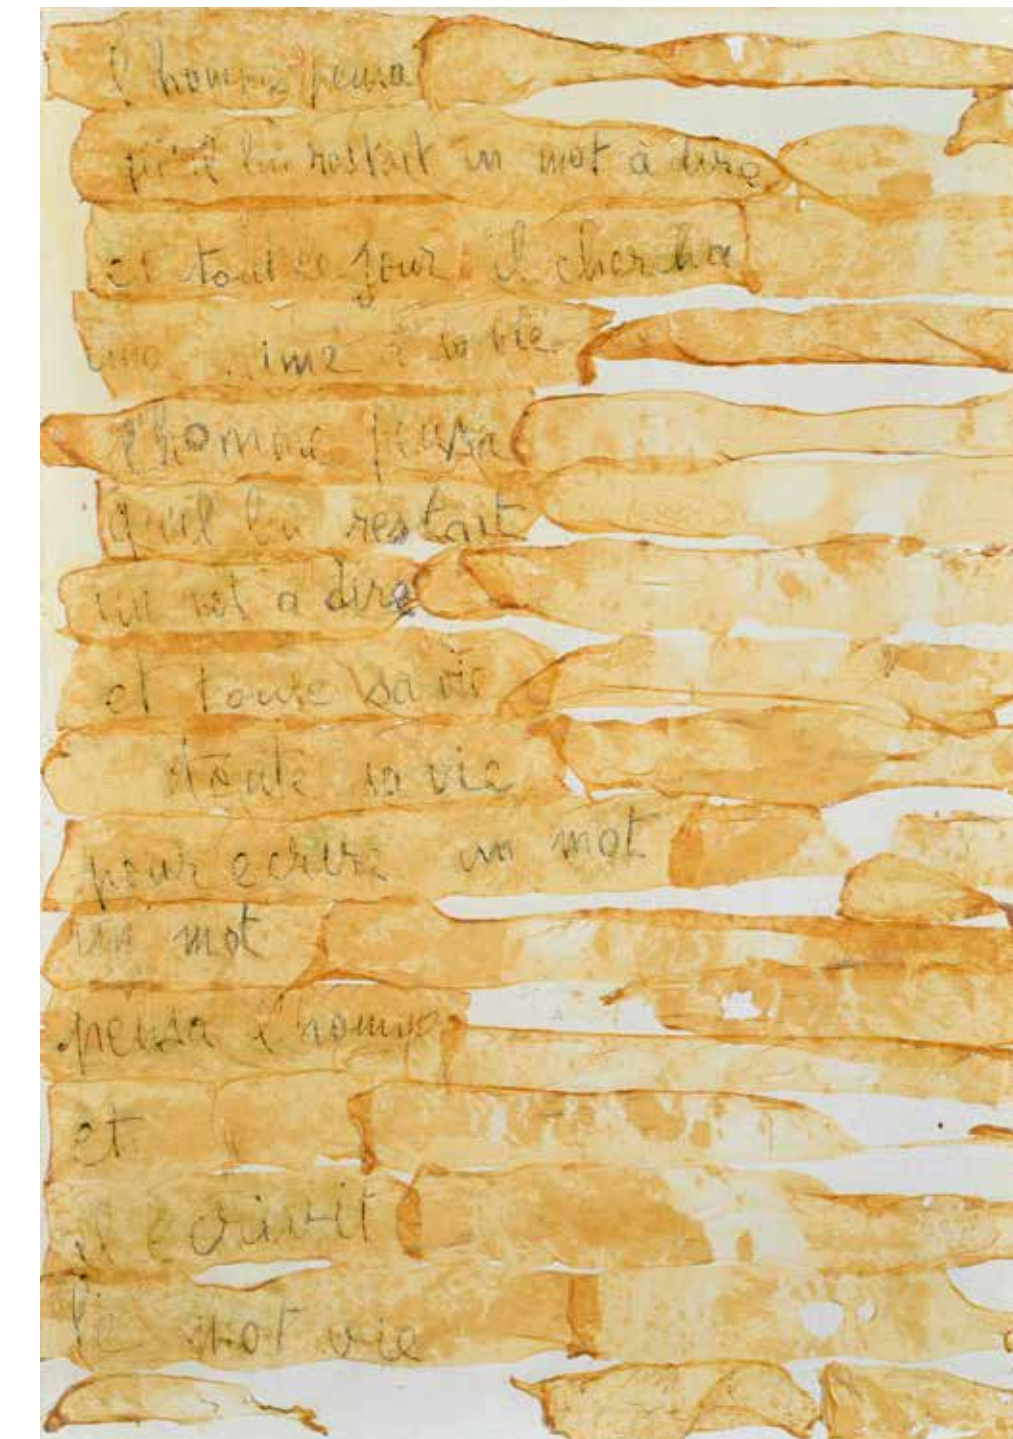 l'homme pensa
qu'il lui restait un mot à dire
et tout ce jour il chercha
une rime à sa vie
l'homme pensa
qu'il lui restait
un mot à dire
et toute sa vie
toute sa vie
pour ecrire un mot
un mot
pensa l'homme
et
il ecrivit
le mot vie